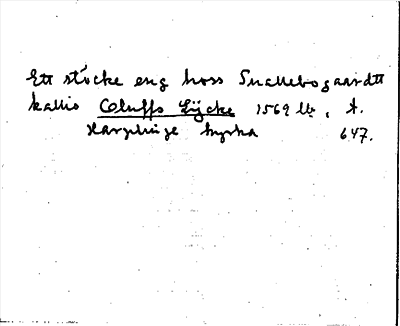 Ett støcke eng hoss Snallebogaardtt
kallis Oluffs Lÿcke 1569 lb, A.
Harplinge kyrka 647.